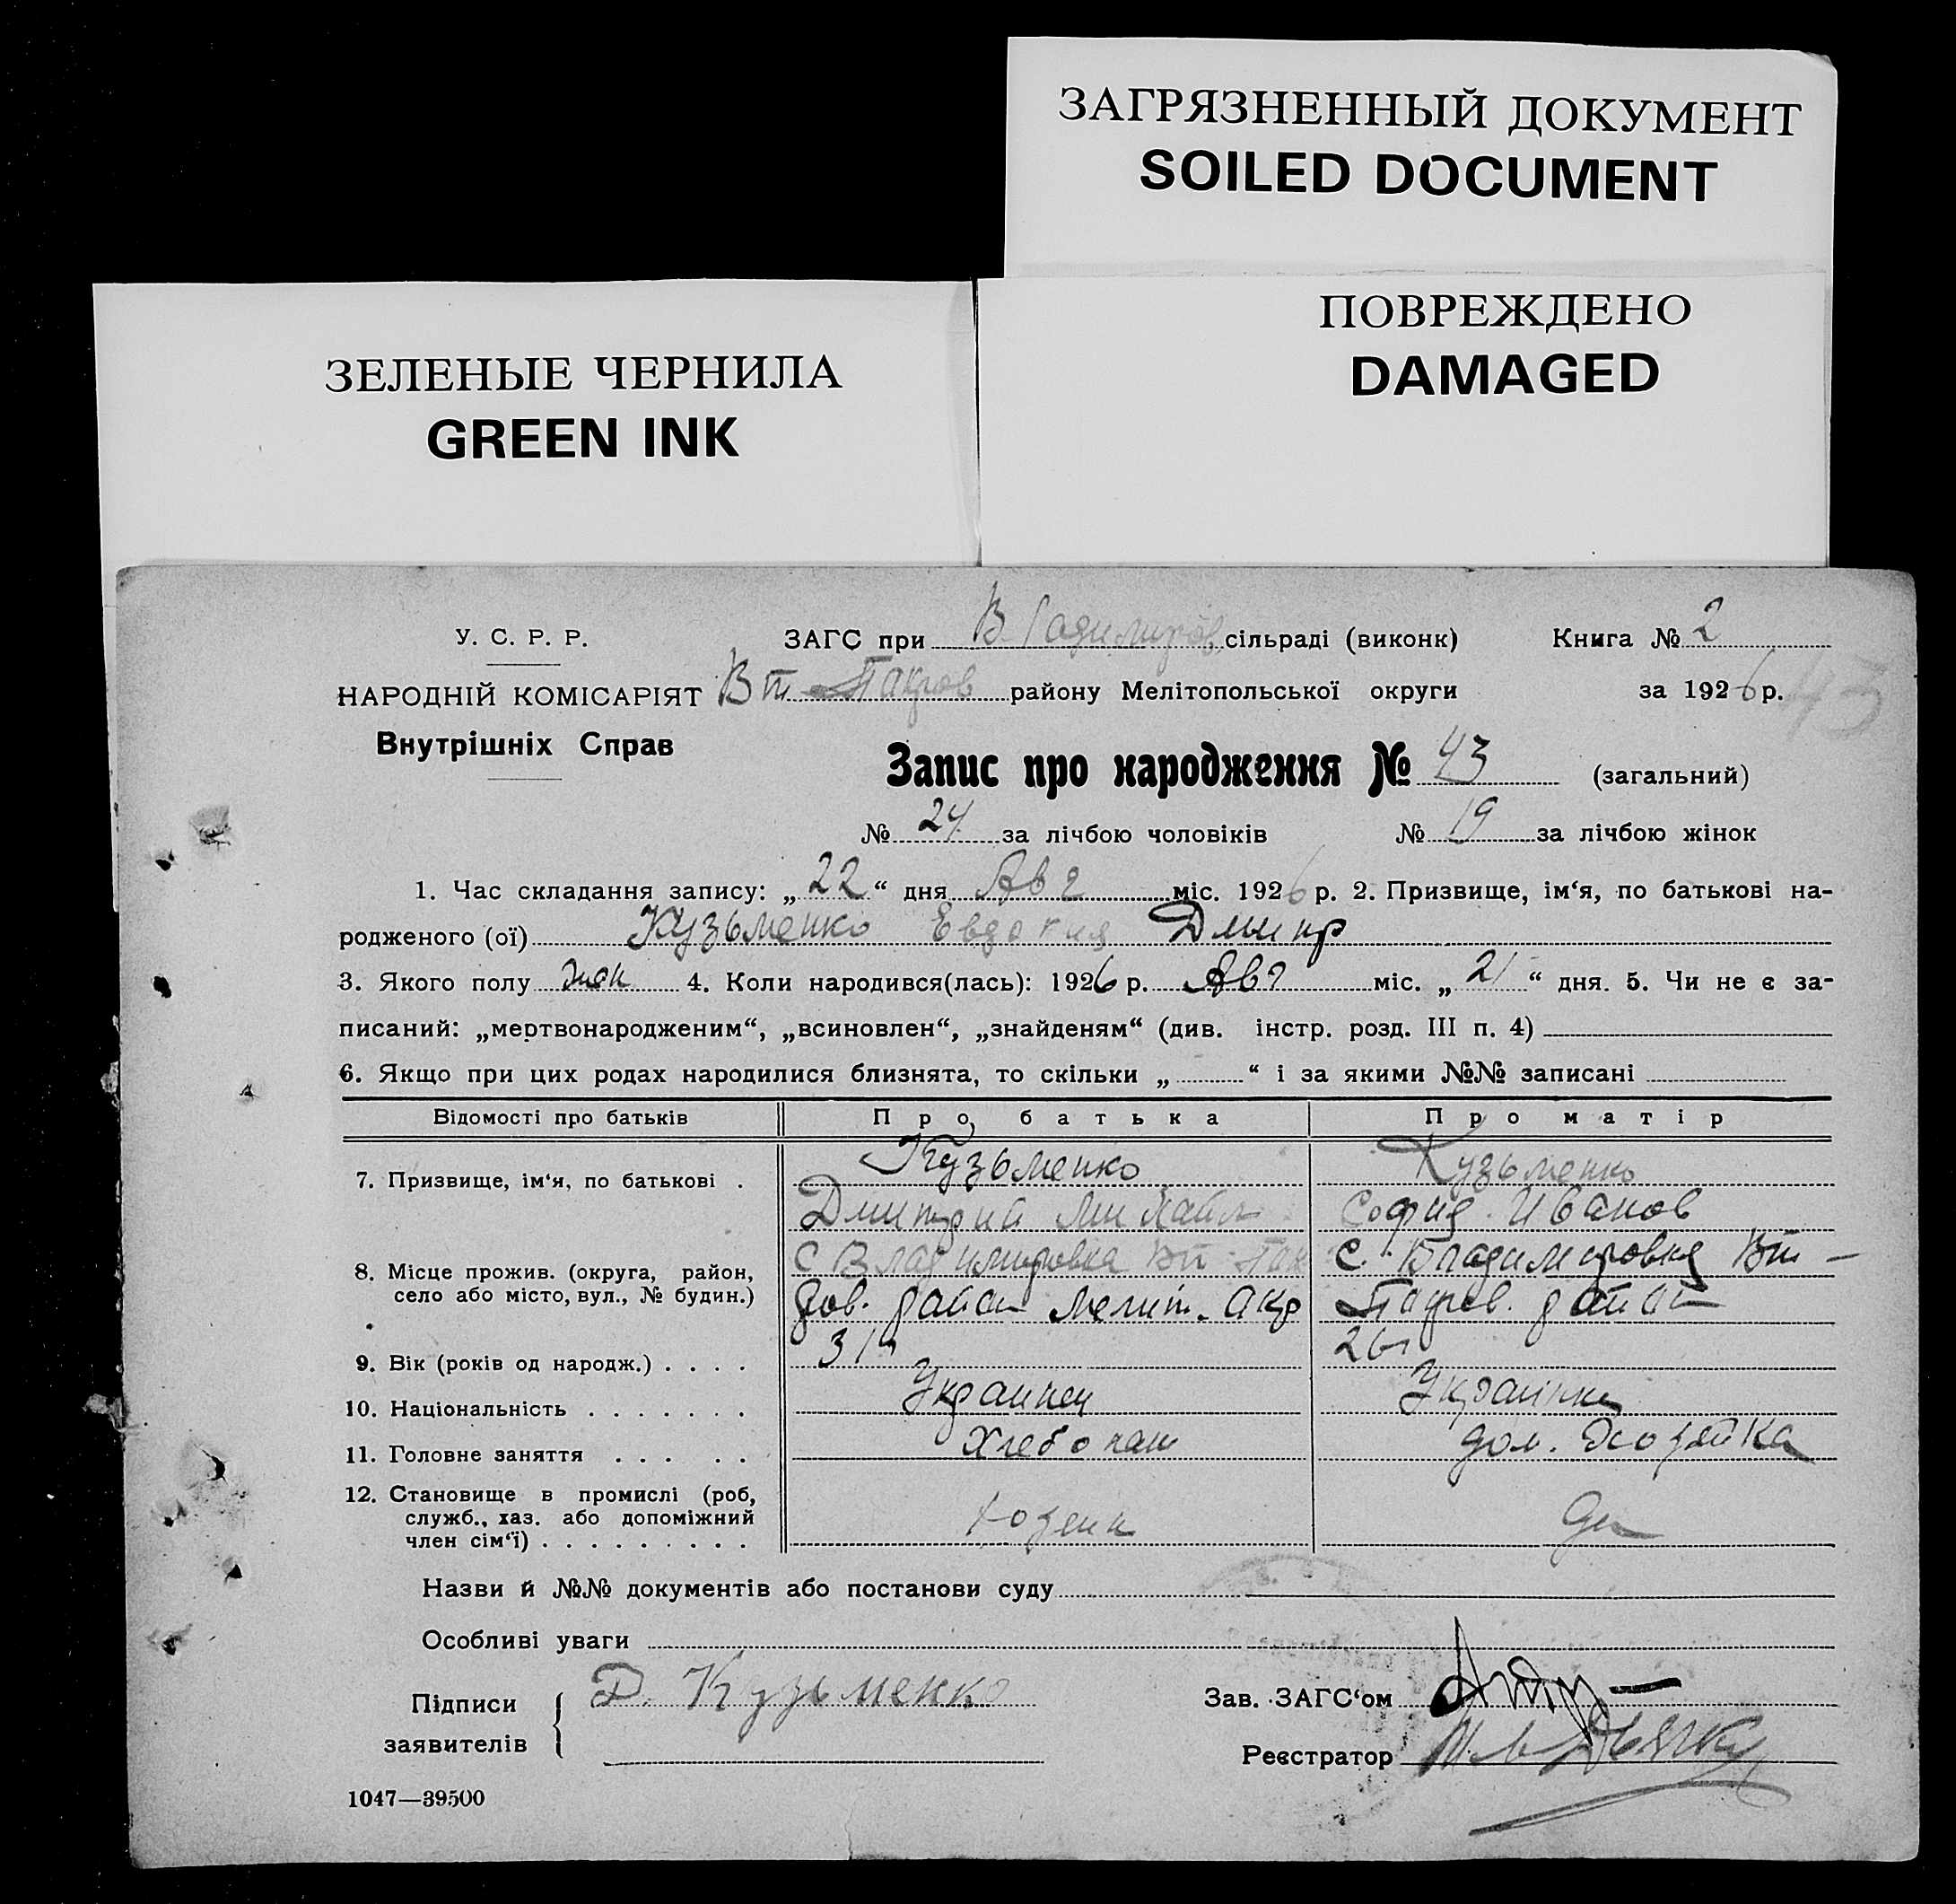 ЗАГРЯЗНЕННЫЙ ДОКУМЕНТ
SOILED DOCUMENT
ПОВРЕЖДЕНО
DAMAGED
ЗЕЛЕНЫЕ ЧЕРНИЛА
GREEN INK
У. С. Р. Р.
ЗАГС при Владимиров сільраді (виконк) Книга № 2
НАРОДНІЙ КОМІСАРІЯТ Вт-Пакров району Мелітопольської округи за 1926 р. 43
Внутрішніх Справ
Запис про народження № 43 (загальний)
№ 24 за лічбою чоловіків № 19 за лічбою жінок
1. Час складання запису: „22“ дня Авг міс. 1926 р. 2. Призвище, ім‘я, по батькові на-
родженого (ої) Кузьменко Евдокия Дмитр
3. Якого полу жен 4. Коли народився(лась): 1926 р. Авг міс. „21“ дня. 5. Чи не є за-
писаний: „мертвонародженим“, „всиновлен“, „знайденям“ (див. інстр. розд. III п. 4)
6. Якщо при цих родах народилися близнята, то скільки „ “ і за якими №№ записані
Відомості про батьків Про батька Про матір
7. Призвище, ім‘я, по батькові . Кузьменко Кузьменко
Дмитрий Михайл София Иванов
8. Місце прожив. (округа, район, с Владимировка Вт-Пак с. Владимировка Вт-
село або місто, вул., № будин.) ров. район Мелит. Окр Покров. район
9. Вік (років од народж.) . . . . 31 26
10. Національність . . . . . . . Украинец Украинка
11. Головне заняття . . . . . Хлебопаш дом. Хозяйка
12. Становище в промислі (роб,
служб., хаз. або допоміжний Хозяин
член сім‘ї) . . . . . . . . .
Назви й №№ документів або постанови суду
Особливі уваги
Підписи Д. Кузьменко Зав. ЗАГС‘ом
заявителів Реєстратор
1047—39500